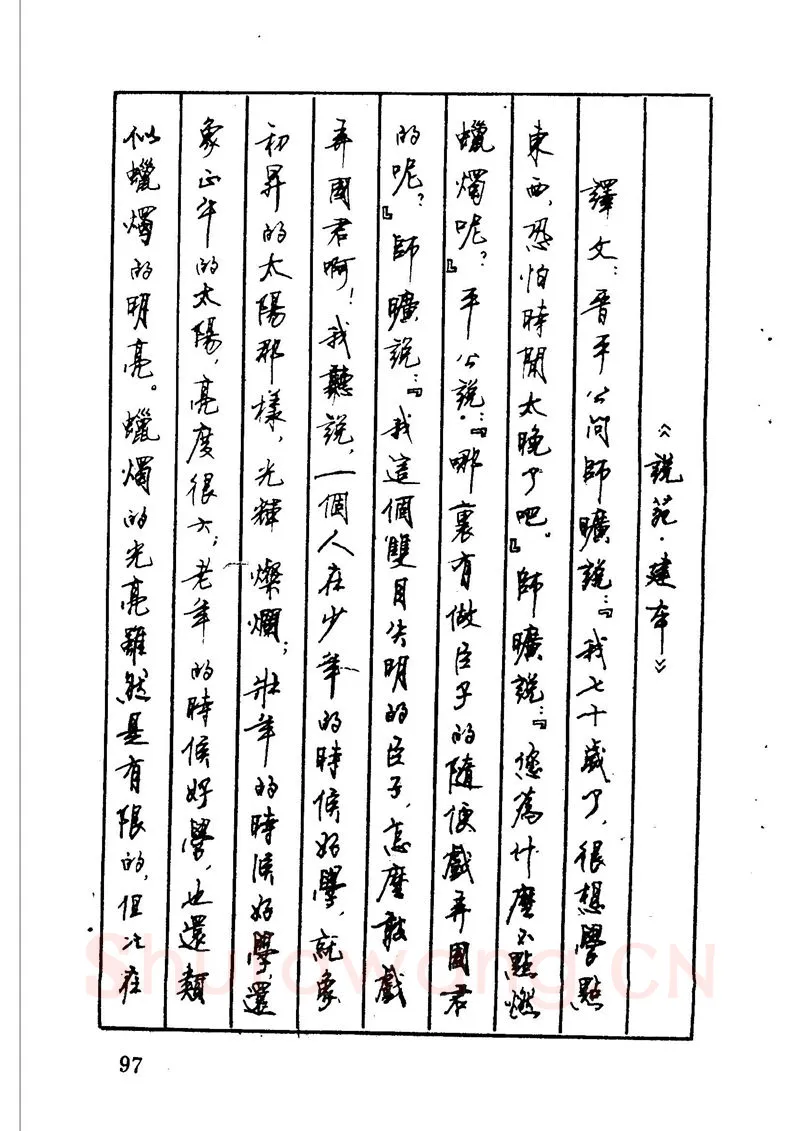 《説苑·建本》
譯文：晋平公问師曠説：『我七十歲了，很想學點
東西，恐怕時間太晚了吧。』師曠説：『您為什麼不點燃
蠟燭呢？』平公説：『哪裏有做臣子的隨便戲弄國君
的呢？』師曠説：『我這個雙目失明的臣子，怎麼敢戲
弄國君啊！我聽説，一個人在少年的時候好學，就象
初昇的太陽那樣，光輝燦爛；壯年的時候好學，還
象正午的太陽，亮度很大；老年的時候好學，也還類
似蠟燭的明亮。蠟燭的光亮雖然是有限的，但比在
97
Shufawang.CN